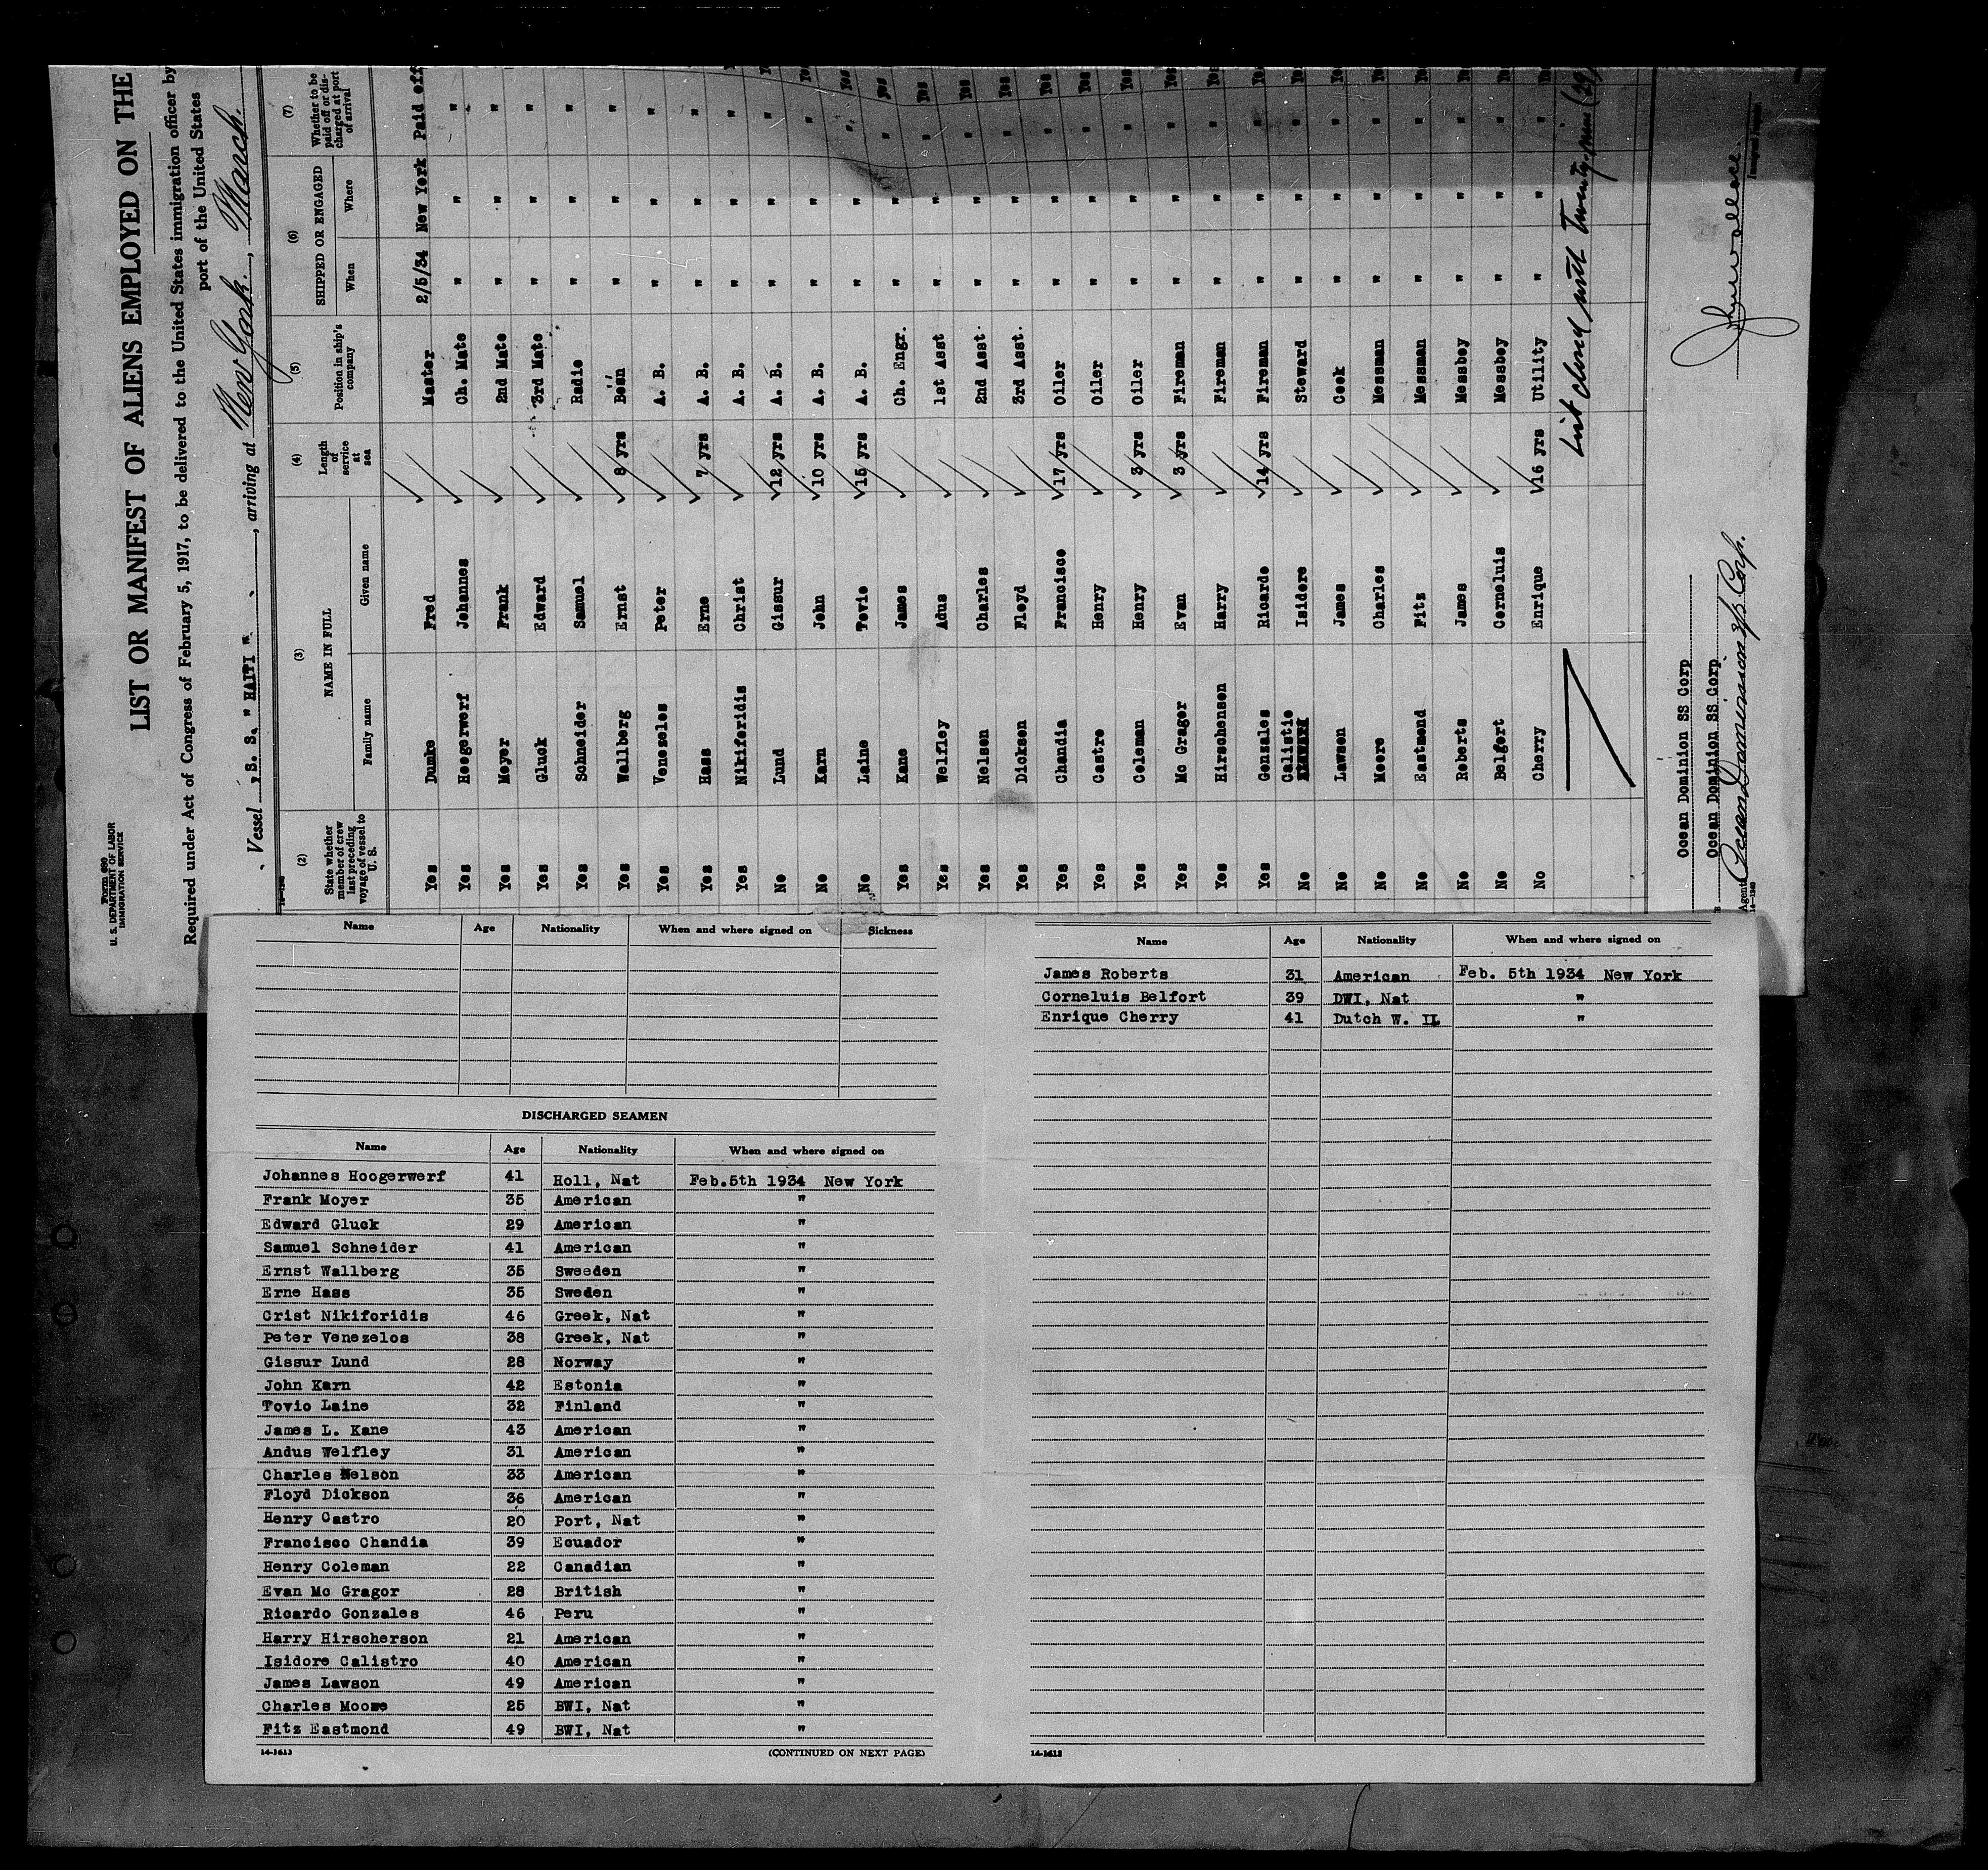 Form 680
U. S. DEPARTMENT OF LABOR
IMMIGRATION SERVICE
LIST OR MANIFEST OF ALIENS EMPLOYED ON THE
Required under Act of Congress of February 5, 1917, to be delivered to the United States immigration officer by
port of the United States
Vessel , S. S. " HAITI " , arriving at New York. , March.
14-1240
(2) (3) (4) (5) (6) (7)
State whether member of crew last preceding voyage of vessel to U. S. NAME IN FULL Length of service at sea Position in ship's company SHIPPED OR ENGAGED Whether to be paid off or dis-charged at port of arrival
Family name Given name When Where
Yes Dumke Fred Master 2/5/34 New York Paid off
Yes Hoogerwerf Johannes Ch. Mate " " "
Yes Moyer Frank 2nd Mate " " "
Yes Gluck Edward 3rd Mate " " "
Yes Schneider Samuel Radio " " "
Yes Wallberg Ernst 8 yrs Bosn " " " Yes
Yes Venezelos Peter A. B. " " " Yes
Yes Hass Erne 7 yrs A. B. " " " Yes
Yes Nikiforidis Christ A. B. " " " Yes
No Lund Gissur 12 yrs A. B. " " " Yes
No Karn John 10 yrs A. B. " " " Yes
No Laine Tovio 15 yrs A. B. " " " Yes
Yes Kane James Ch. Engr. " " " Yes
Yes Welfley Adus 1st Asst " " " Yes
Yes Nelson Charles 2nd Asst. " " " Yes
Yes Dickson Floyd 3rd Asst. " " " Yes
Yes Chandia Francisco 17 yrs Oiler " " " Yes
Yes Castro Henry Oiler " " " Yes
Yes Coleman Henry 3 yrs Oiler " " " Yes
Yes Mc Gragor Evan 3 yrs Fireman " " " Yes
Yes Hirschenson Harry Fireman " " " Yes
Yes Gonzales Ricardo 14 yrs Fireman " " " Yes
No Calistio Isidore Steward " " " Yes
No Lawson James Cook " " " Yes
No Moore Charles Messman " " " Yes
No Eastmond Fitz Messman " " " Yes
No Roberts James Messboy " " " Yes
No Belfort Corneluis Messboy " " " Yes
No Cherry Enrique 16 yrs Utility " " " Yes
List closed with Twenty-nine (29)
Ocean Dominion SS Corp
Ocean Dominion SS Corp
Agents Ocean Dominion S/S Corp.
14-1240
Immigrant Inspector.
Name Age Nationality When and where signed on Sickness
DISCHARGED SEAMEN
Name Age Nationality When and where signed on
Johannes Hoogerwerf 41 Holl, Nat Feb.5th 1934 New York
Frank Moyer 35 American "
Edward Gluck 29 American "
Samuel Schneider 41 American "
Ernst Wallberg 35 Sweeden "
Erne Hass 35 Sweden "
Crist Nikiforidis 46 Greek, Nat "
Peter Venezelos 38 Greek, Nat "
Gissur Lund 28 Norway "
John Karn 42 Estonia "
Tovio Laine 32 Finland "
James L. Kane 43 American "
Andus Welfley 31 American "
Charles Nelson 33 American "
Floyd Dickson 36 American "
Henry Castro 20 Port, Nat "
Francisco Chandia 39 Ecuador "
Henry Coleman 22 Canadian "
Evan Mc Gragor 28 British "
Ricardo Gonzales 46 Peru "
Harry Hirscherson 21 American "
Isidore Calistro 40 American "
James Lawson 49 American "
Charles Moore 25 BWI, Nat "
Fitz Eastmond 49 BWI, Nat "
14-1613 (CONTINUED ON NEXT PAGE)
Name Age Nationality When and where signed on
James Roberts 31 American Feb. 5th 1934 New York
Corneluis Belfort 39 DWI, Nat "
Enrique Cherry 41 Dutch W. II "
14-1613